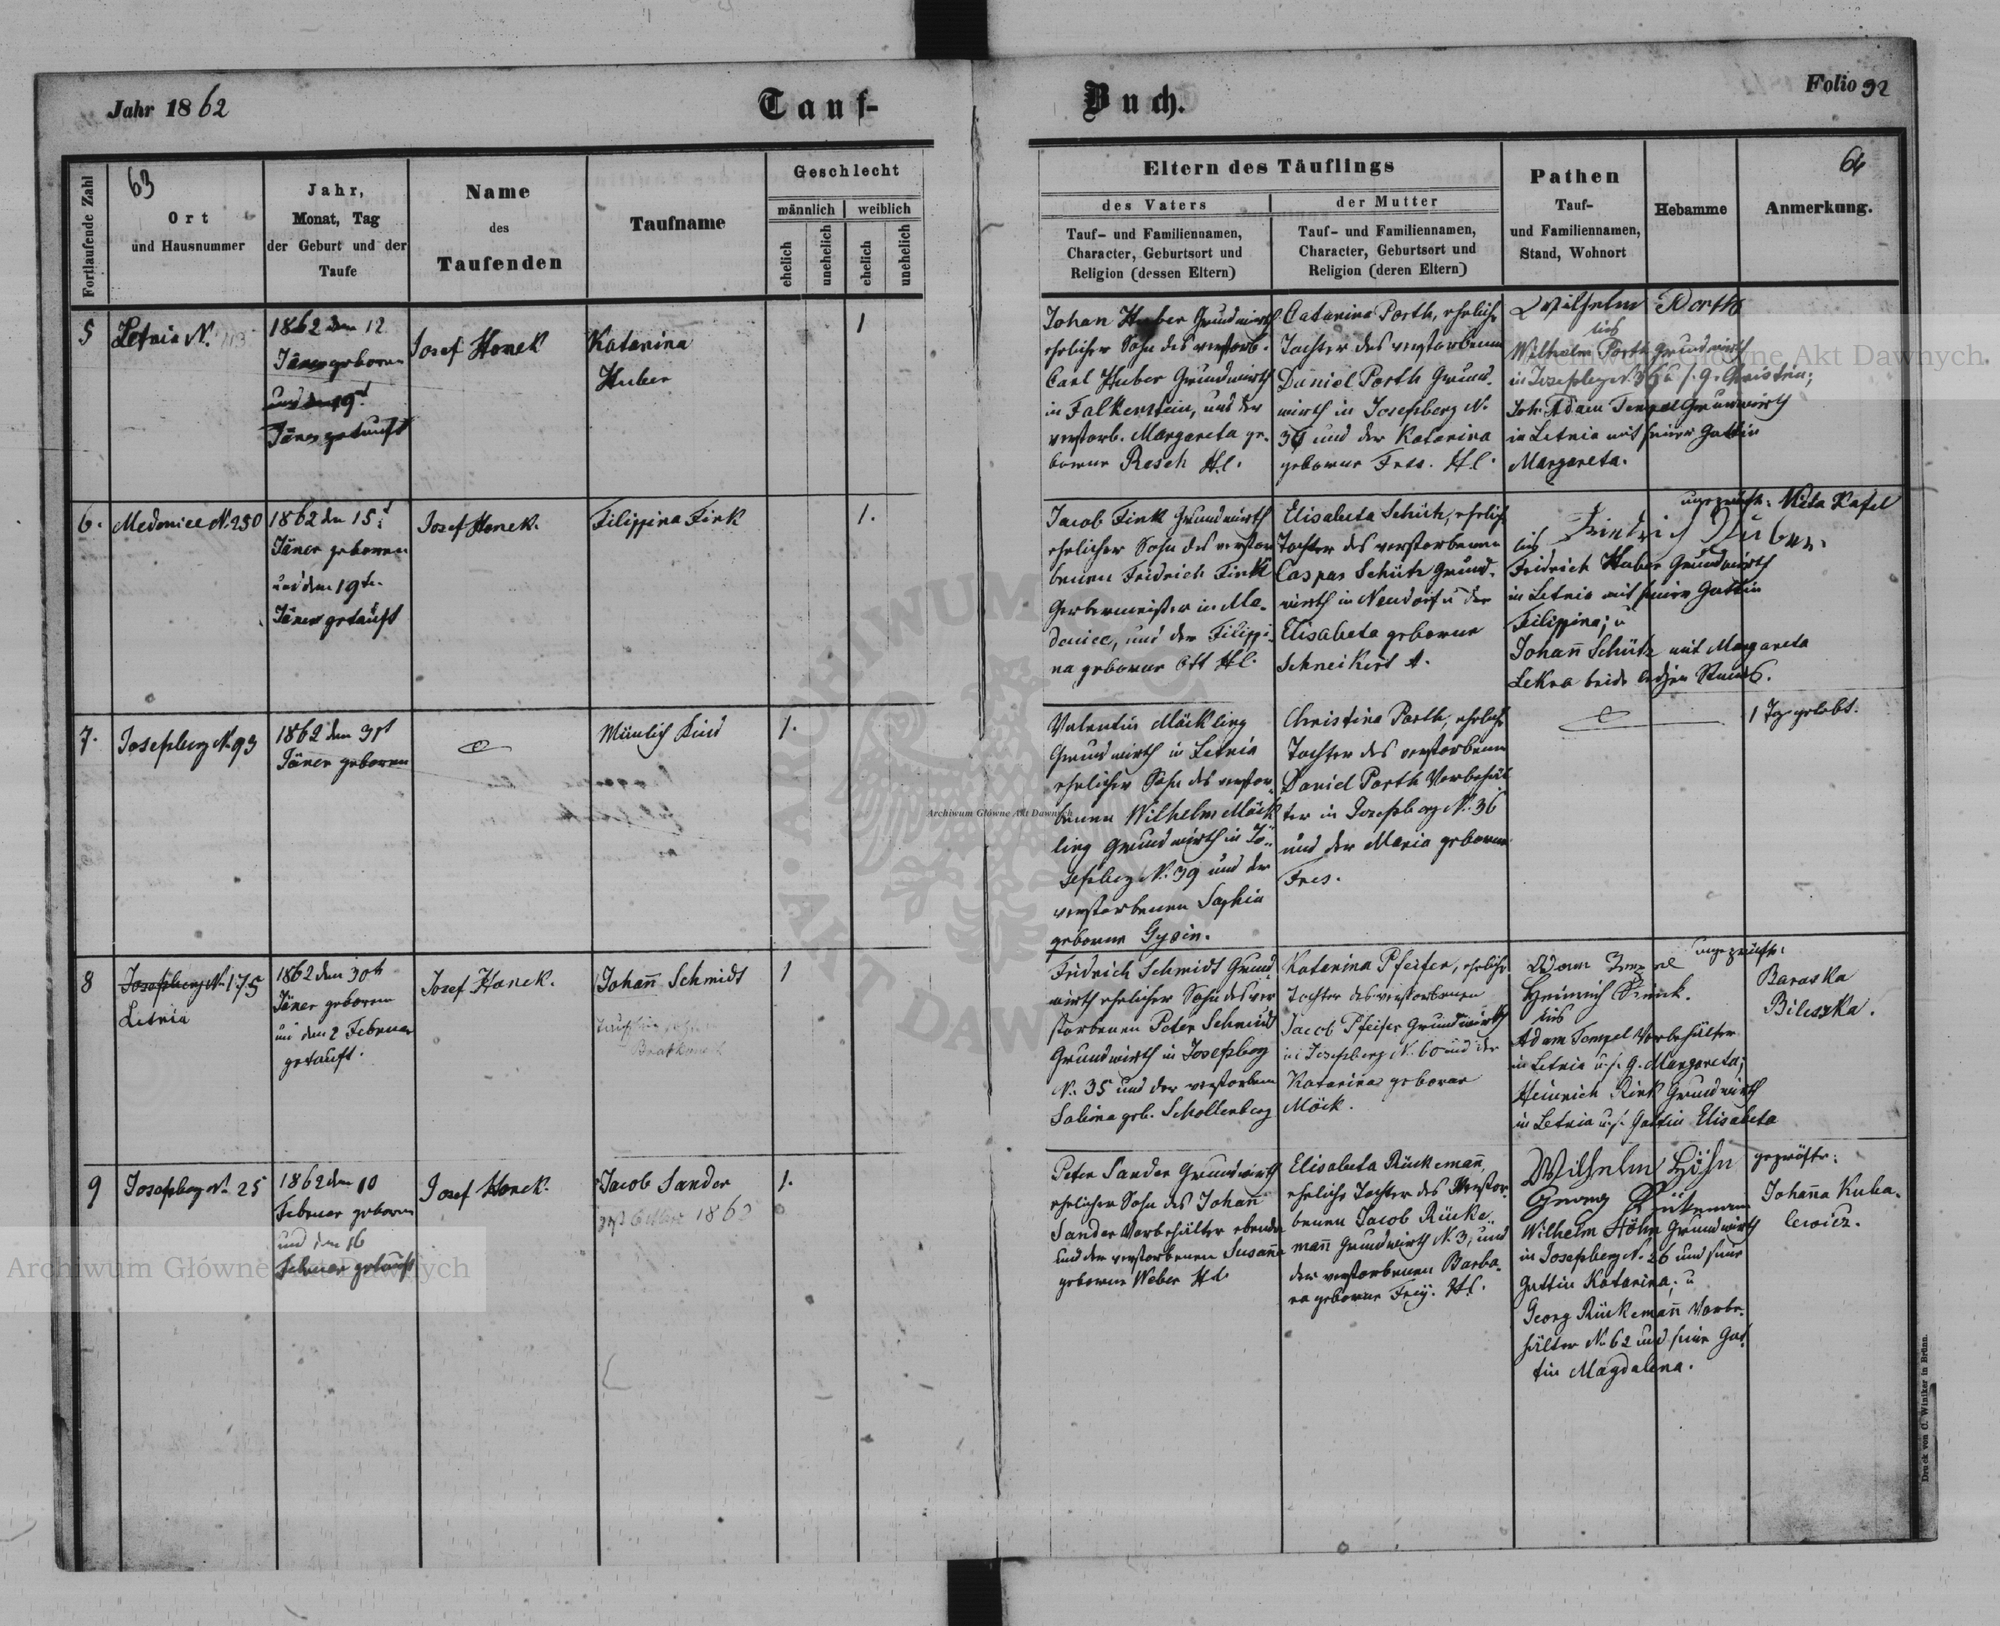 Jahr 1862
Tauf-
Buch.
Folio 92
63
64
Fortlaufende Zahl
Ort
und Hausnummer
Jahr,
Monat, Tag
der Geburt und der
Taufe
Name
des
Taufenden
Taufname
Geschlecht
männlich
weiblich
ehelich
unehelich
ehelich
unehelich
Eltern des Täuflings
des Vaters
der Mutter
Tauf- und Familiennamen,
Character, Geburtsort und
Religion (dessen Eltern)
Tauf- und Familiennamen,
Character, Geburtsort und
Religion (deren Eltern)
Pathen
Tauf-
und Familiennamen,
Stand, Wohnort
Hebamme
Anmerkung.
5
Letnia N. 113
1862 den 12
Jäner geboren
und den 19t
Jäner getauft
Josef Honek
Katarina
Huber
1
Johan Huber Grundwirth
ehelicher Sohn des verstorb.
Carl Huber Grundwirth
in Falkenstein, und der
verstorb. Margareta ge-
borene Resch Hl.
Catarina Porth, ehelich
Tochter des verstorbenen
Daniel Porth Grund-
wirth in Josefsberg N.
36 und der Katarina
geborene Fres. Hl.
Wilhelm Porth
Wilhelm Porth Grundwirth
in Josefsberg N. 36 u. s. G. Christin;
Joh. Adam Tempel Grundwirth
in Letnia mit seiner Gattin
Margareta.
6.
Medenice N. 250
1862 den 15t
Jäner geboren
und den 19te
Jäner getauft
Josef Honek.
Filippina Fink
1.
Jacob Fink Grundwirth
ehelicher Sohn des verstor
benen Fridrich Fink
Gerbermeister in Me-
denice, und der Filippi-
na geborene Ott Hl.
Elisabeta Schütz, ehelich
Tochter des verstorbenen
Caspar Schütz Grund-
wirth in Neudorf u der
Elisabeta geborene
Schneikert A.
ungeprüft: Nista Kafel
Fridrich Huber.
Fridrich Huber Grundwirth
in Letnia mit seiner Gattin
Filippina; u
Johann̄ Schütz mit Margareta
Lekra beide ledigen Stands.
7.
Josefsberg N. 93
1862 den 31t
Jäner geboren
Männlich Kind
1.
Valentin Mäckling
Grundwirth in Letnia
ehelicher Sohn des verstor-
benen Wilhelm Mäck
ling Grundwirth in Jo-
sefsberg N. 39 und der
verstorbenen Sophia
geborne Gysin.
Christina Porth, ehelich
Tochter des verstorbenen
Daniel Porth Vorbehäl
ter in Josefsberg N. 36
und der Maria geborene
Fres.
1 Tag gelebt.
8
Josefsberg N. 175
Letnia
1862 den 30t
Jäner geboren
und den 2 Februar
getauft.
Josef Honek.
Johann̄ Schmidt
1
Fridrich Schmidt Grund
wirth ehelicher Sohn des ver
storbenen Peter Schmidt
Grundwirth in Josefsberg
N. 35 und der verstorbenen
Sabina geb. Schollenberg
Katarina Pfeifer, ehelich
Tochter des verstorbenen
Jacob Pfeifer Grundwirth
in Josefsberg N. 60 und der
Katarina geborene
Möck.
ungeprüft:
Baraska
Bileszka.
Adam Tempel
Heinrich Rink.
Adam Tempel Vorbehälter
in Letnia u. s. G. Margareta;
Heinrich Rink Grundwirth
in Letnia u. s. Gattin Elisabeta
9
Josefsberg N. 25
1862 den 10
Februar geboren
und den 16
Februar getauft
Josef Honek.
Jacob Sander
1.
Peter Sander Grundwirth
ehelicher Sohn des Johan
Sander Vorbehälter ebenda
und der verstorbenen Susann̄a
geborene Weber Hl.
Elisabeta Rückeman̄,
eheliche Tochter des verstor-
benen Jacob Rücke-
man̄ Grundwirth N. 3, und
der verstorbenen Barba-
ra geborene Frey. Hl.
Wilhelm Höhn
Georg Rückemann
Wilhelm Höhn Grundwirth
in Josefsberg N. 26 und seine
Gattin Katarina; u
Georg Rückeman̄ Vorbe-
hälter N. 62 und seine Gat
tin Magdalena.
geprüfte:
Johan̄a Kuba-
lewicz.
Druck von C. Winiker in Brünn.
Archiwum Główne Akt Dawnych
Archiwum Główne Akt Dawnych
Archiwum Główne Akt Dawnych